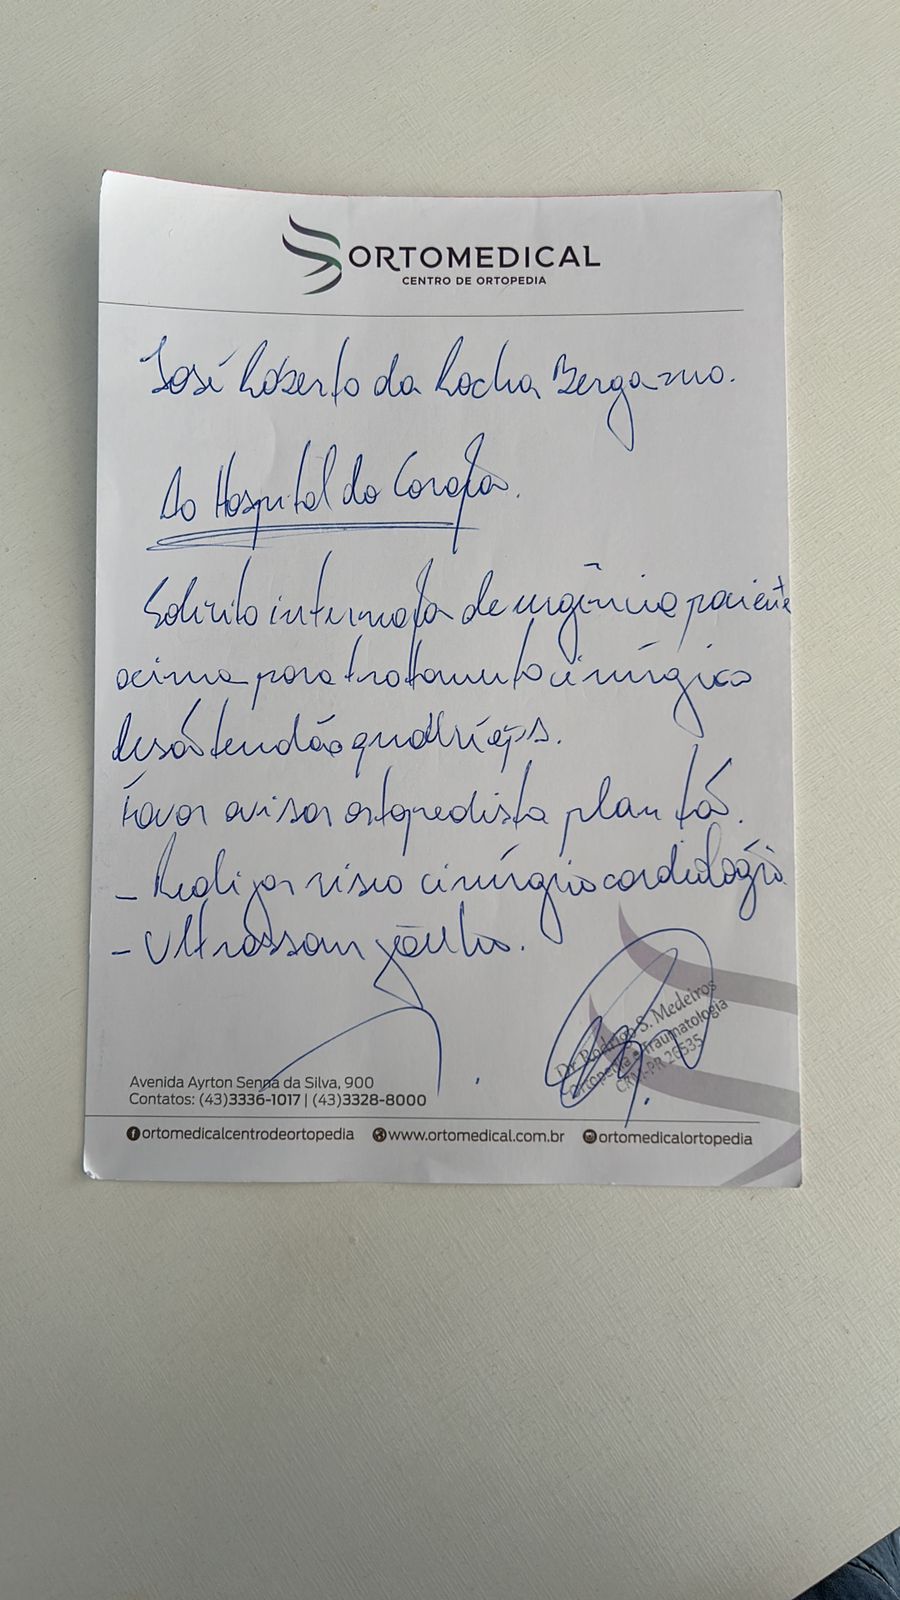 ORTOMEDICAL
CENTRO DE ORTOPEDIA
José Roberto da Rocha Bergamo.
Ao Hospital do Coração.
Solicito internação de urgência paciente
acima para tratamento cirúrgico
lesão tendão quadríceps.
Favor avisar ortopedista plantão.
- Realizar risco cirúrgico cardiológico
- Ultrassom joelho.
Dr. Rodrigo S. Medeiros
Ortopedia e Traumatologia
CRM-PR 26535
Avenida Ayrton Senna da Silva, 900
Contatos: (43)3336-1017 | (43)3328-8000
ortomedicalcentrodeortopedia www.ortomedical.com.br ortomedicalortopedia